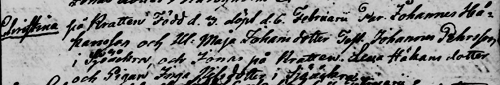 Christina på Kratten Född d. 3. döpt d. 6. Februarii Far. Johannes Hå-
kansson och H. Maja Johansdotter Test. Johannes Pehrsson,
i Sjöåkra, och Jonas på Kratten. Lena Håkans dotter
och Pigan Inga Nilsdotter i Sjöåkra.